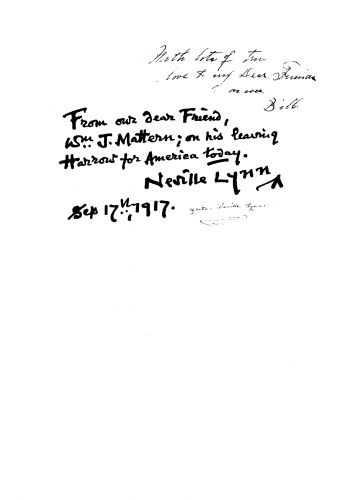 With lots of true
love to my Dear
as ever
Bill
From our dear Friend,
Wm J. Mattern; on his leaving
Harrow for America today.
Neville Lynn
Sep 17th, 1917.